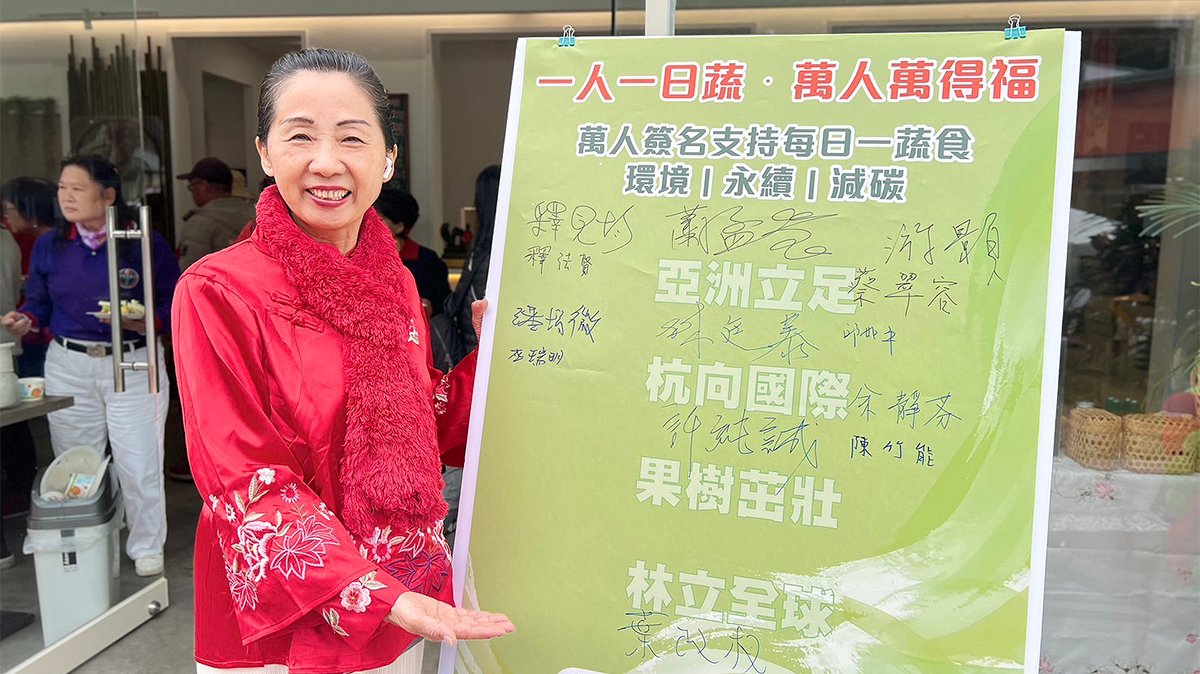 一人一日蔬·萬人萬得福
萬人簽名支持每日一蔬食
環境|永續|減碳
釋見
游顯
釋法賢
亞洲立足
蔡翠容
李瑞明
杭向國際
余靜芬
許純誠
陳竹能
果樹茁壯
林立全球
葉政